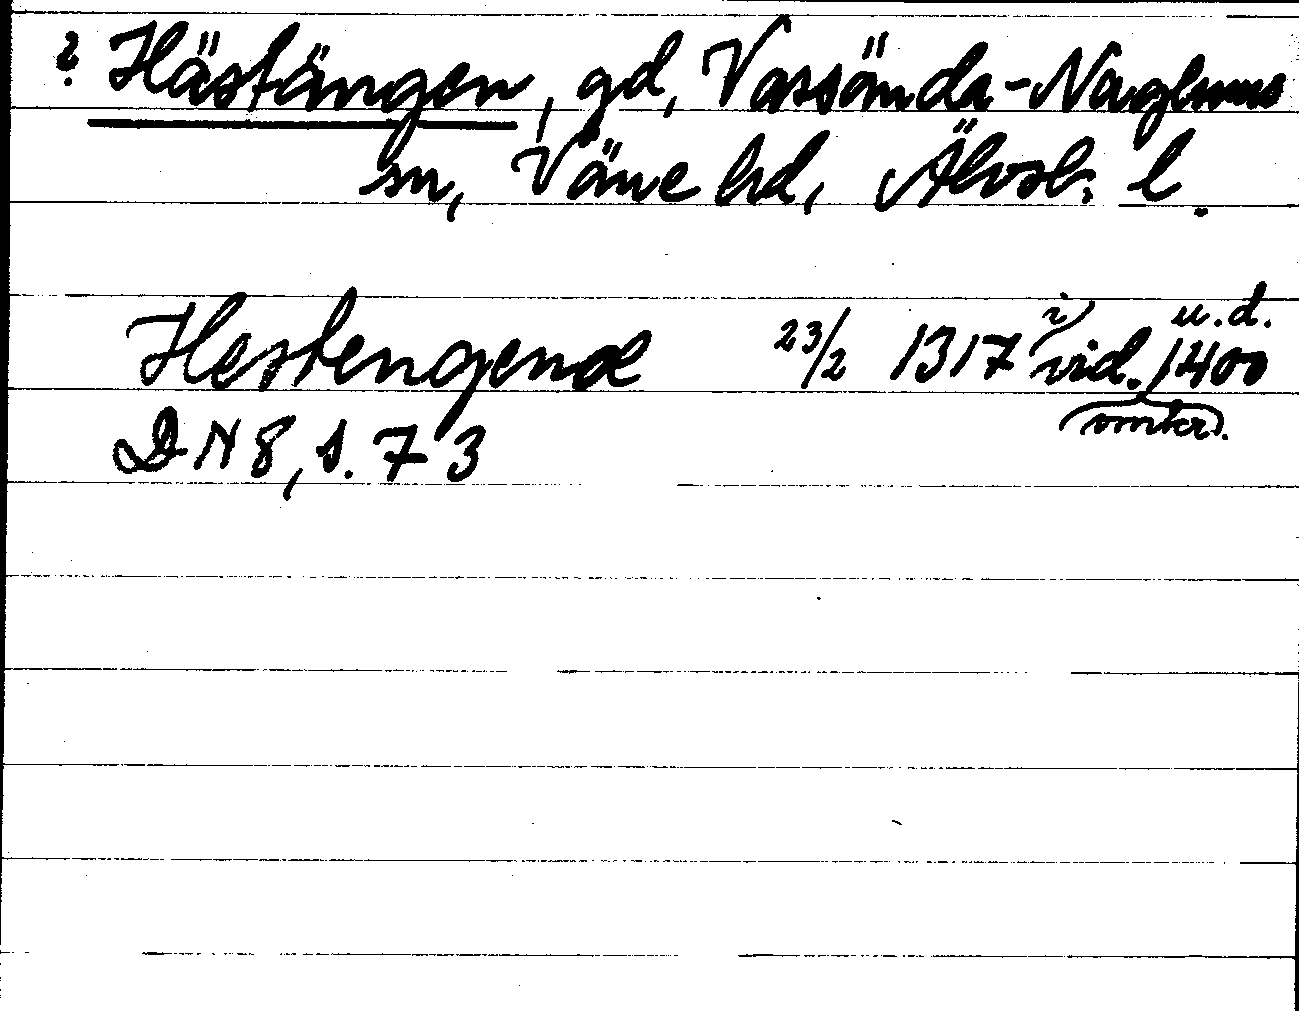 ? Hästängen, gd, Vassända-Naglums
sn, Väne hd, Älvsb. l.
Hestengenæ 23/2 1317 i vid. u.d. 1400
(omkr).
DN 8, s. 73